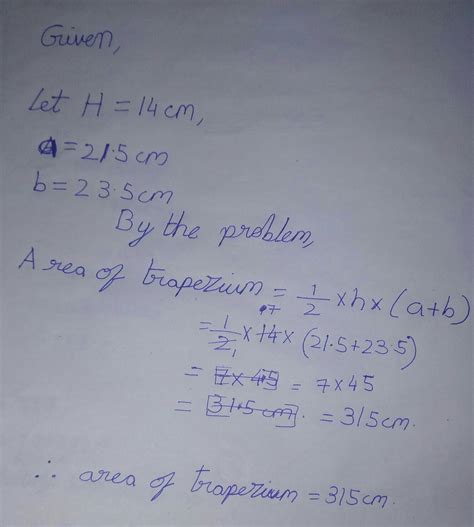 Given,
Let H = 14 cm,
a = 21.5 cm
b = 23.5 cm
By the problem,
Area of trapezium = 1/2 × h × (a+b)
= 1/2 × 14 × (21.5+23.5)
= 7×45 = 7×45
= 31.5 cm. = 315cm.
∴ area of trapezium = 315cm.